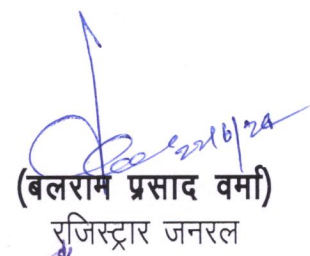 22/6/24
(बलराम प्रसाद वर्मा)
रजिस्ट्रार जनरल